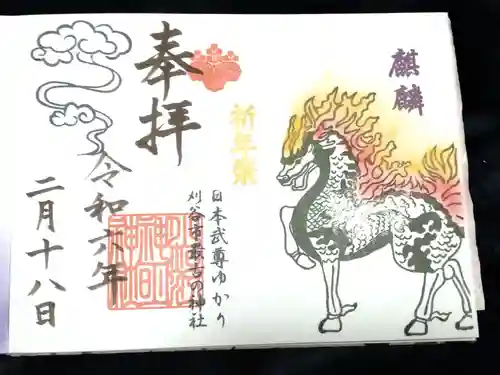 麒麟
奉拝
祈年祭
日本武尊ゆかり
刈谷市最古の神社
令和六年
二月十八日